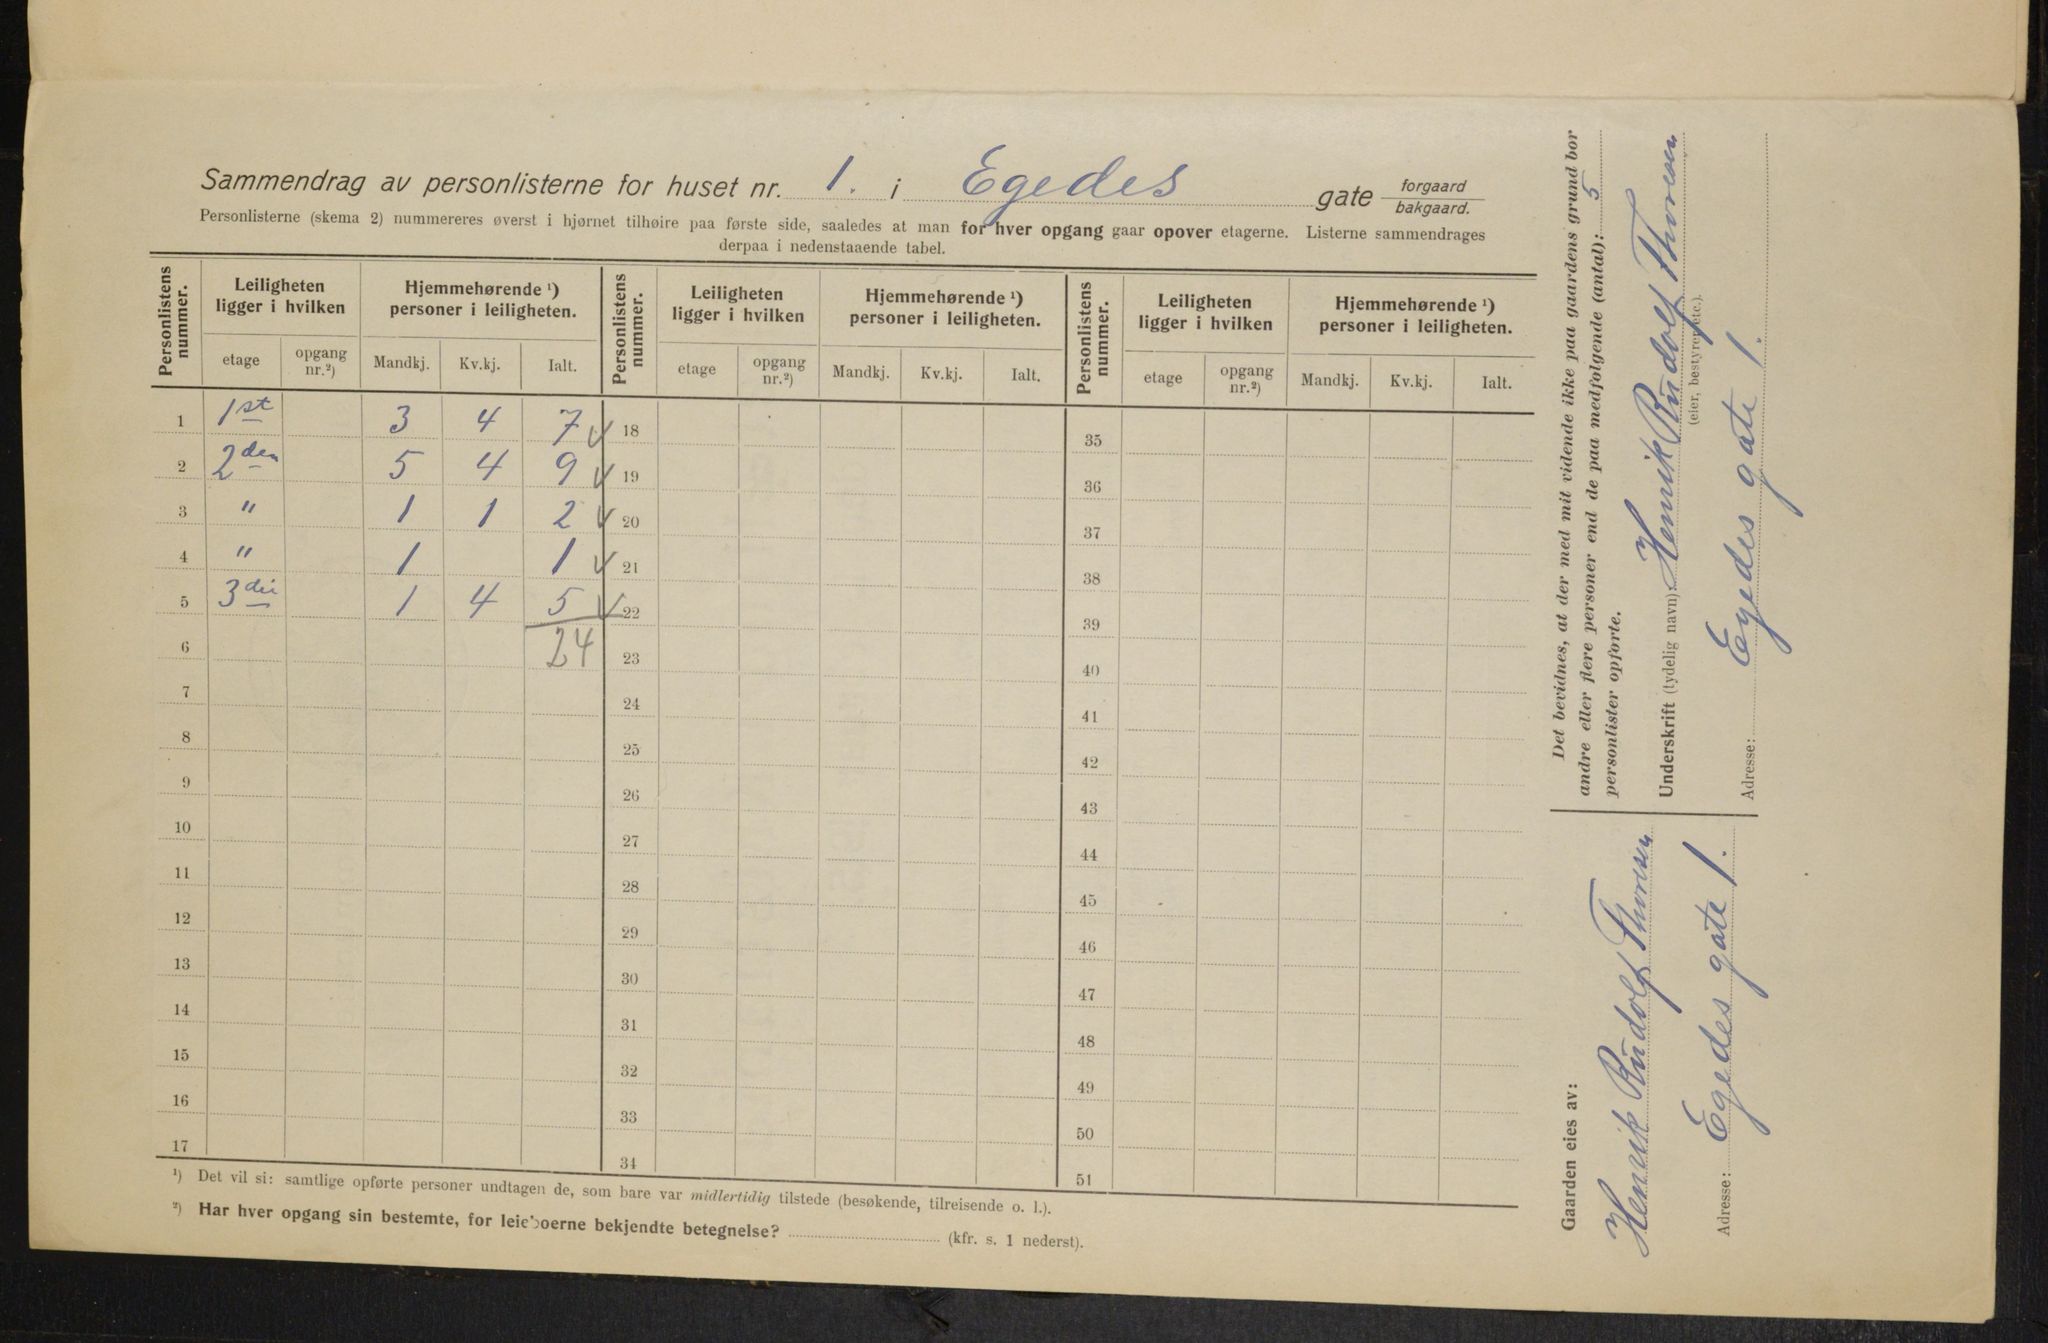 Sammendrag av personlisterne for huset nr. 1. i Egedes gate forgaard bakgaard.
Personlisterne (skema 2) nummereres øverst i hjørnet tilhøire paa første side, saaledes at man for hver opgang gaar opover etagerne. Listerne sammendrages
derpaa i nedenstaaende tabel.
Personlistens nummer. Leiligheten ligger i hvilken Hjemmehørende ¹) personer i leiligheten. Personlistens nummer. Leiligheten ligger i hvilken Hjemmehørende ¹) personer i leiligheten. Personlistens nummer. Leiligheten ligger i hvilken Hjemmehørende ¹) personer i leiligheten.
etage opgang nr.²) Mandkj. Kv.kj. Ialt. etage opgang nr.²) Mandkj. Kv.kj. Ialt. etage opgang nr.²) Mandkj. Kv.kj. Ialt.
1 1st 3 4 7 ✓ 18 35
2 2den 5 4 9 ✓ 19 36
3 " 1 1 2 ✓ 20 37
4 " 1 1 ✓ 21 38
5 3die 1 4 5 ✓ 22 39
6 24 23 40
7 24 41
8 25 42
9 26 43
10 27 44
11 28 45
12 29 46
13 30 47
14 31 48
15 32 49
16 33 50
17 34 51
¹) Det vil si: samtlige opførte personer undtagen de, som bare var midlertidig tilstede (besøkende, tilreisende o. l.).
²) Har hver opgang sin bestemte, for leieboerne bekjendte betegnelse? (kfr. s. 1 nederst).
Det bevidnes, at der med mit vidende ikke paa gaardens grund bor
andre eller flere personer end de paa medfølgende (antal): 5
personlister opførte.
Underskrift (tydelig navn): Henrik Rudolf Thoresen
(eier, bestyrer etc.).
Adresse: Egedes gate 1.
Gaarden eies av:
Henrik Rudolf Thoresen
Adresse: Egedes gate 1.